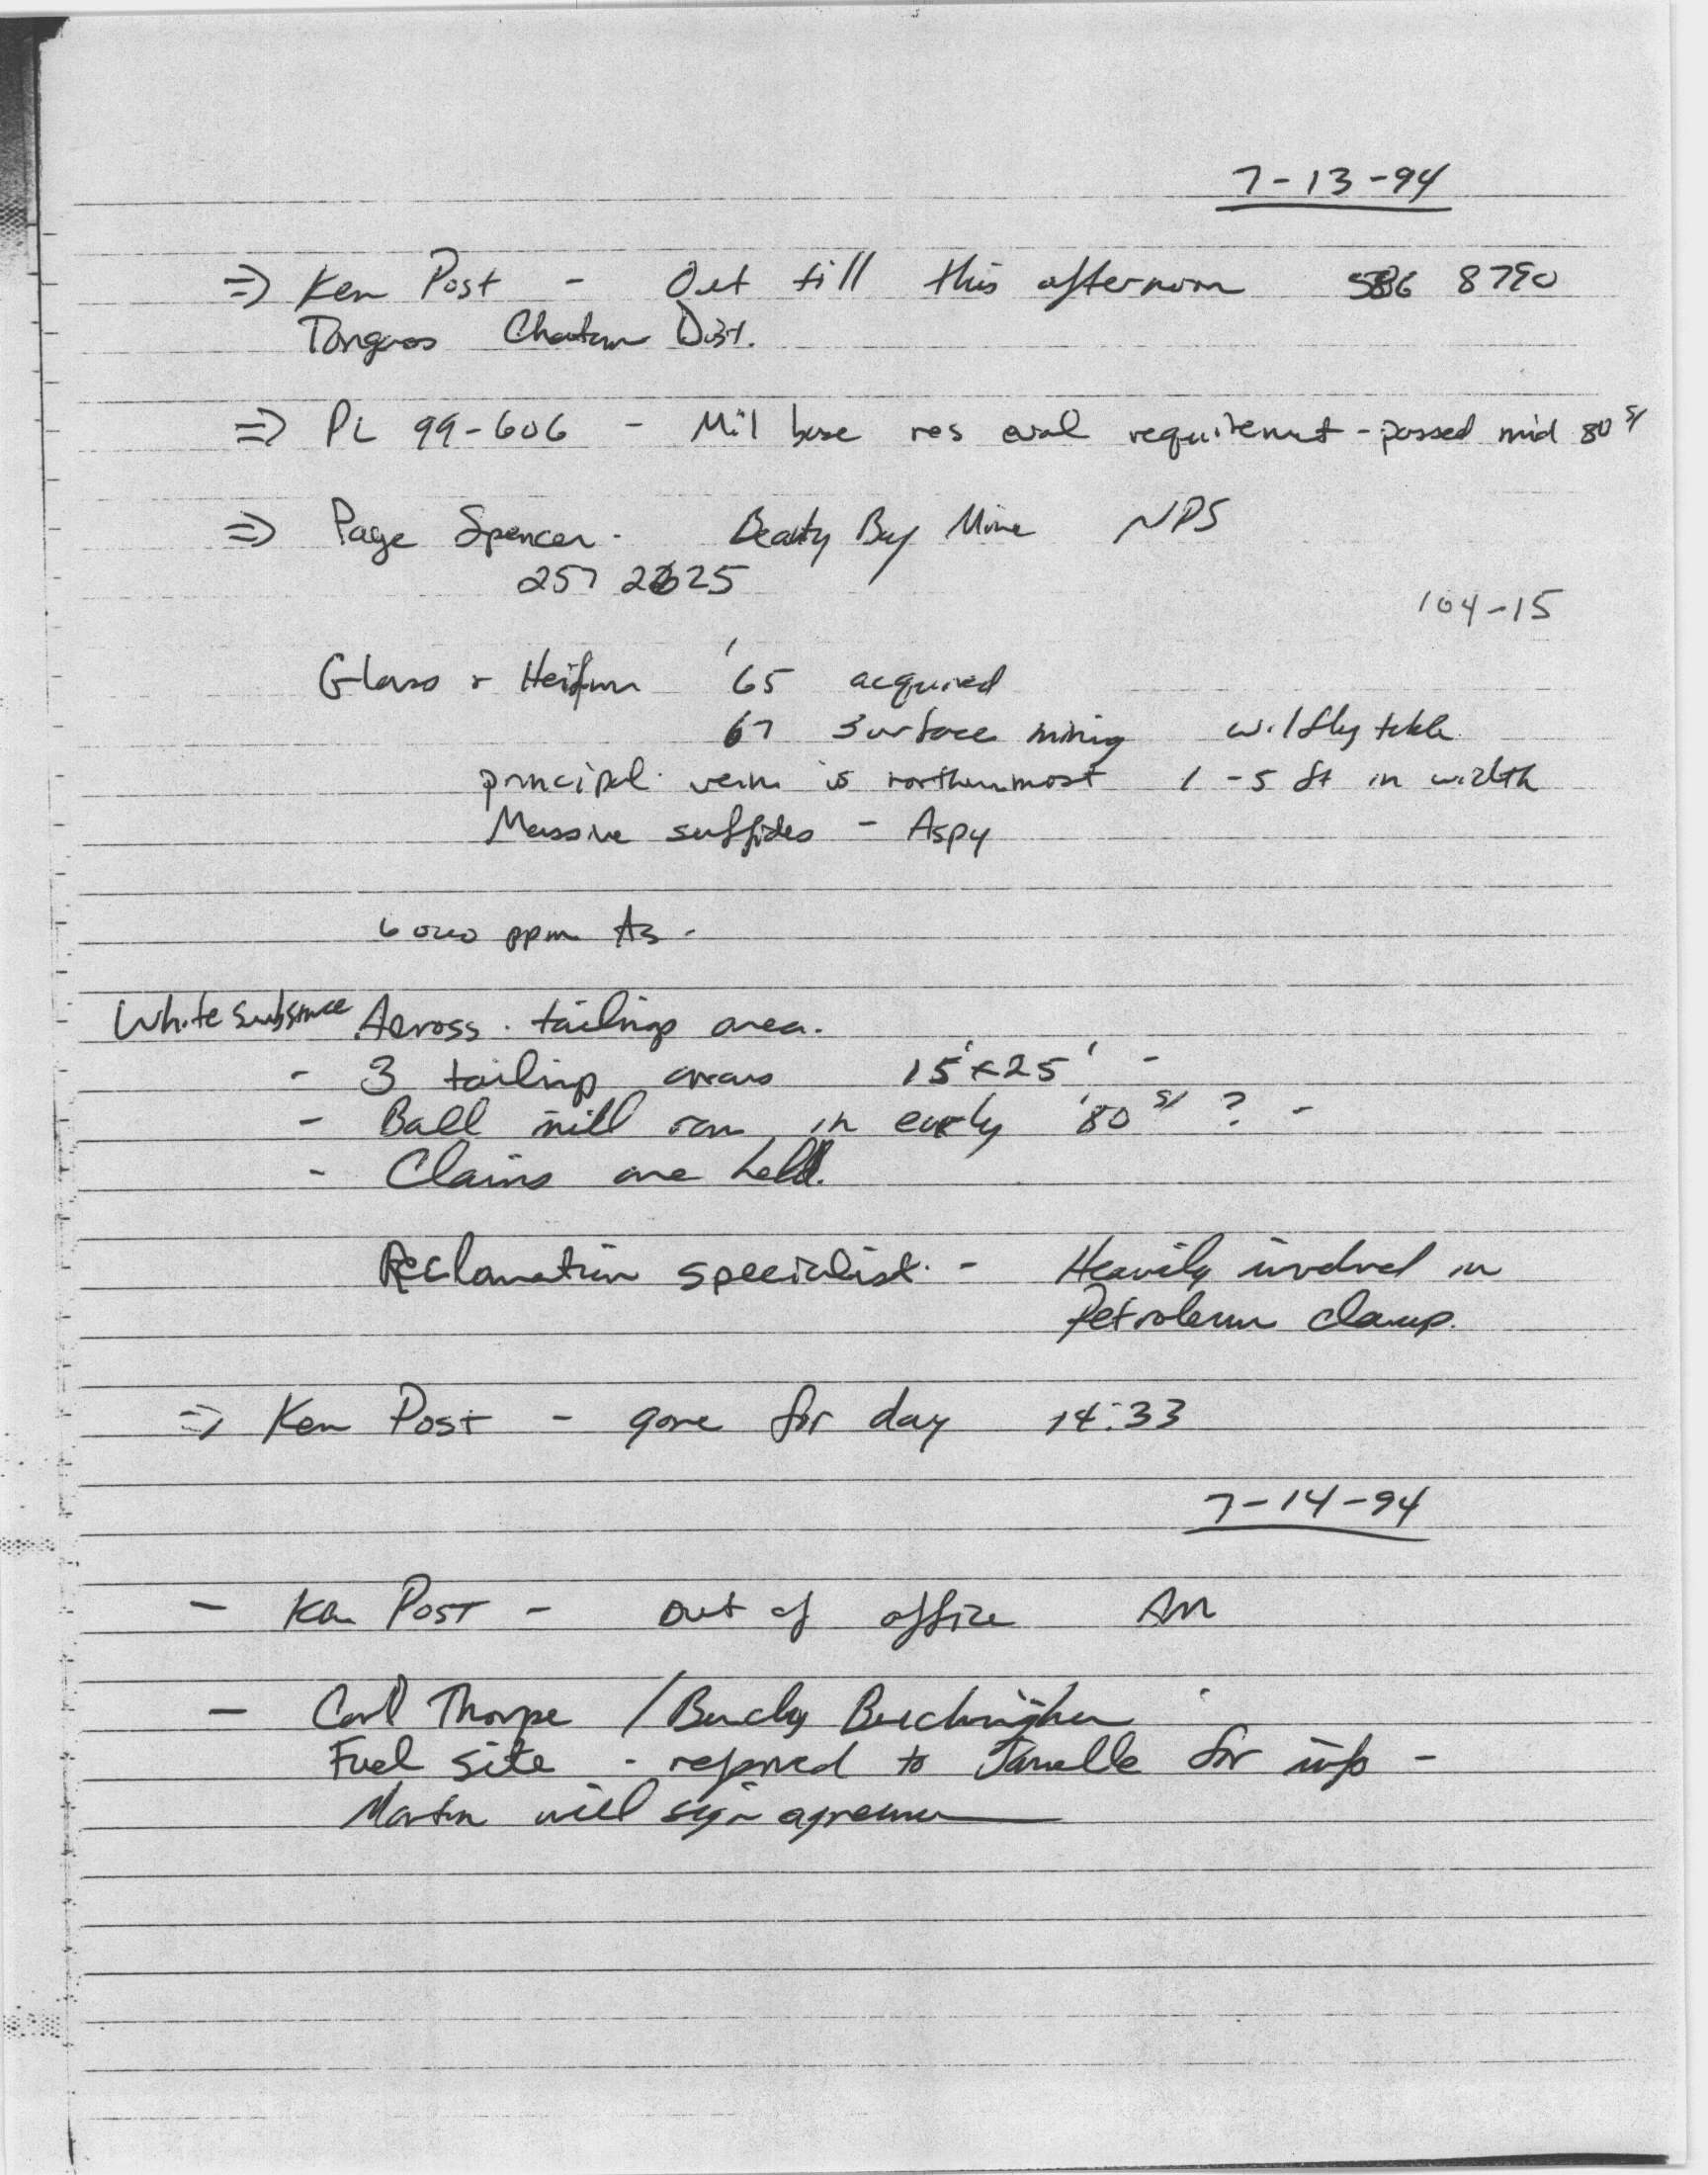 7-13-94
⇒ Ken Post - Out till this afternoon 586 8790
Tongass Chatam Dist.
⇒ PL 99-606 - Mil base res eval requirement - passed mid 80's
⇒ Page Spencer - Beauty Bay Mine NPS
257 2625
104-15
Glass & '65 acquired
67 Surface mining
principal vein is northernmost 1 - 5 ft in width
Massive sulfides - Aspy
6000 ppm As -
White substance Across tailings area.
- 3 tailing areas 15' x 25' -
- Ball mill ran in early '80's ? -
- Claims are held.
Reclamation specialist - Heavily involved in
Petroleum cleanup.
⇒ Ken Post - gone for day 14:33
7-14-94
- Ken Post - out of office AM
- Carl Thorpe /
Fuel site - referred to Janelle for info -
Martin will sign agreement